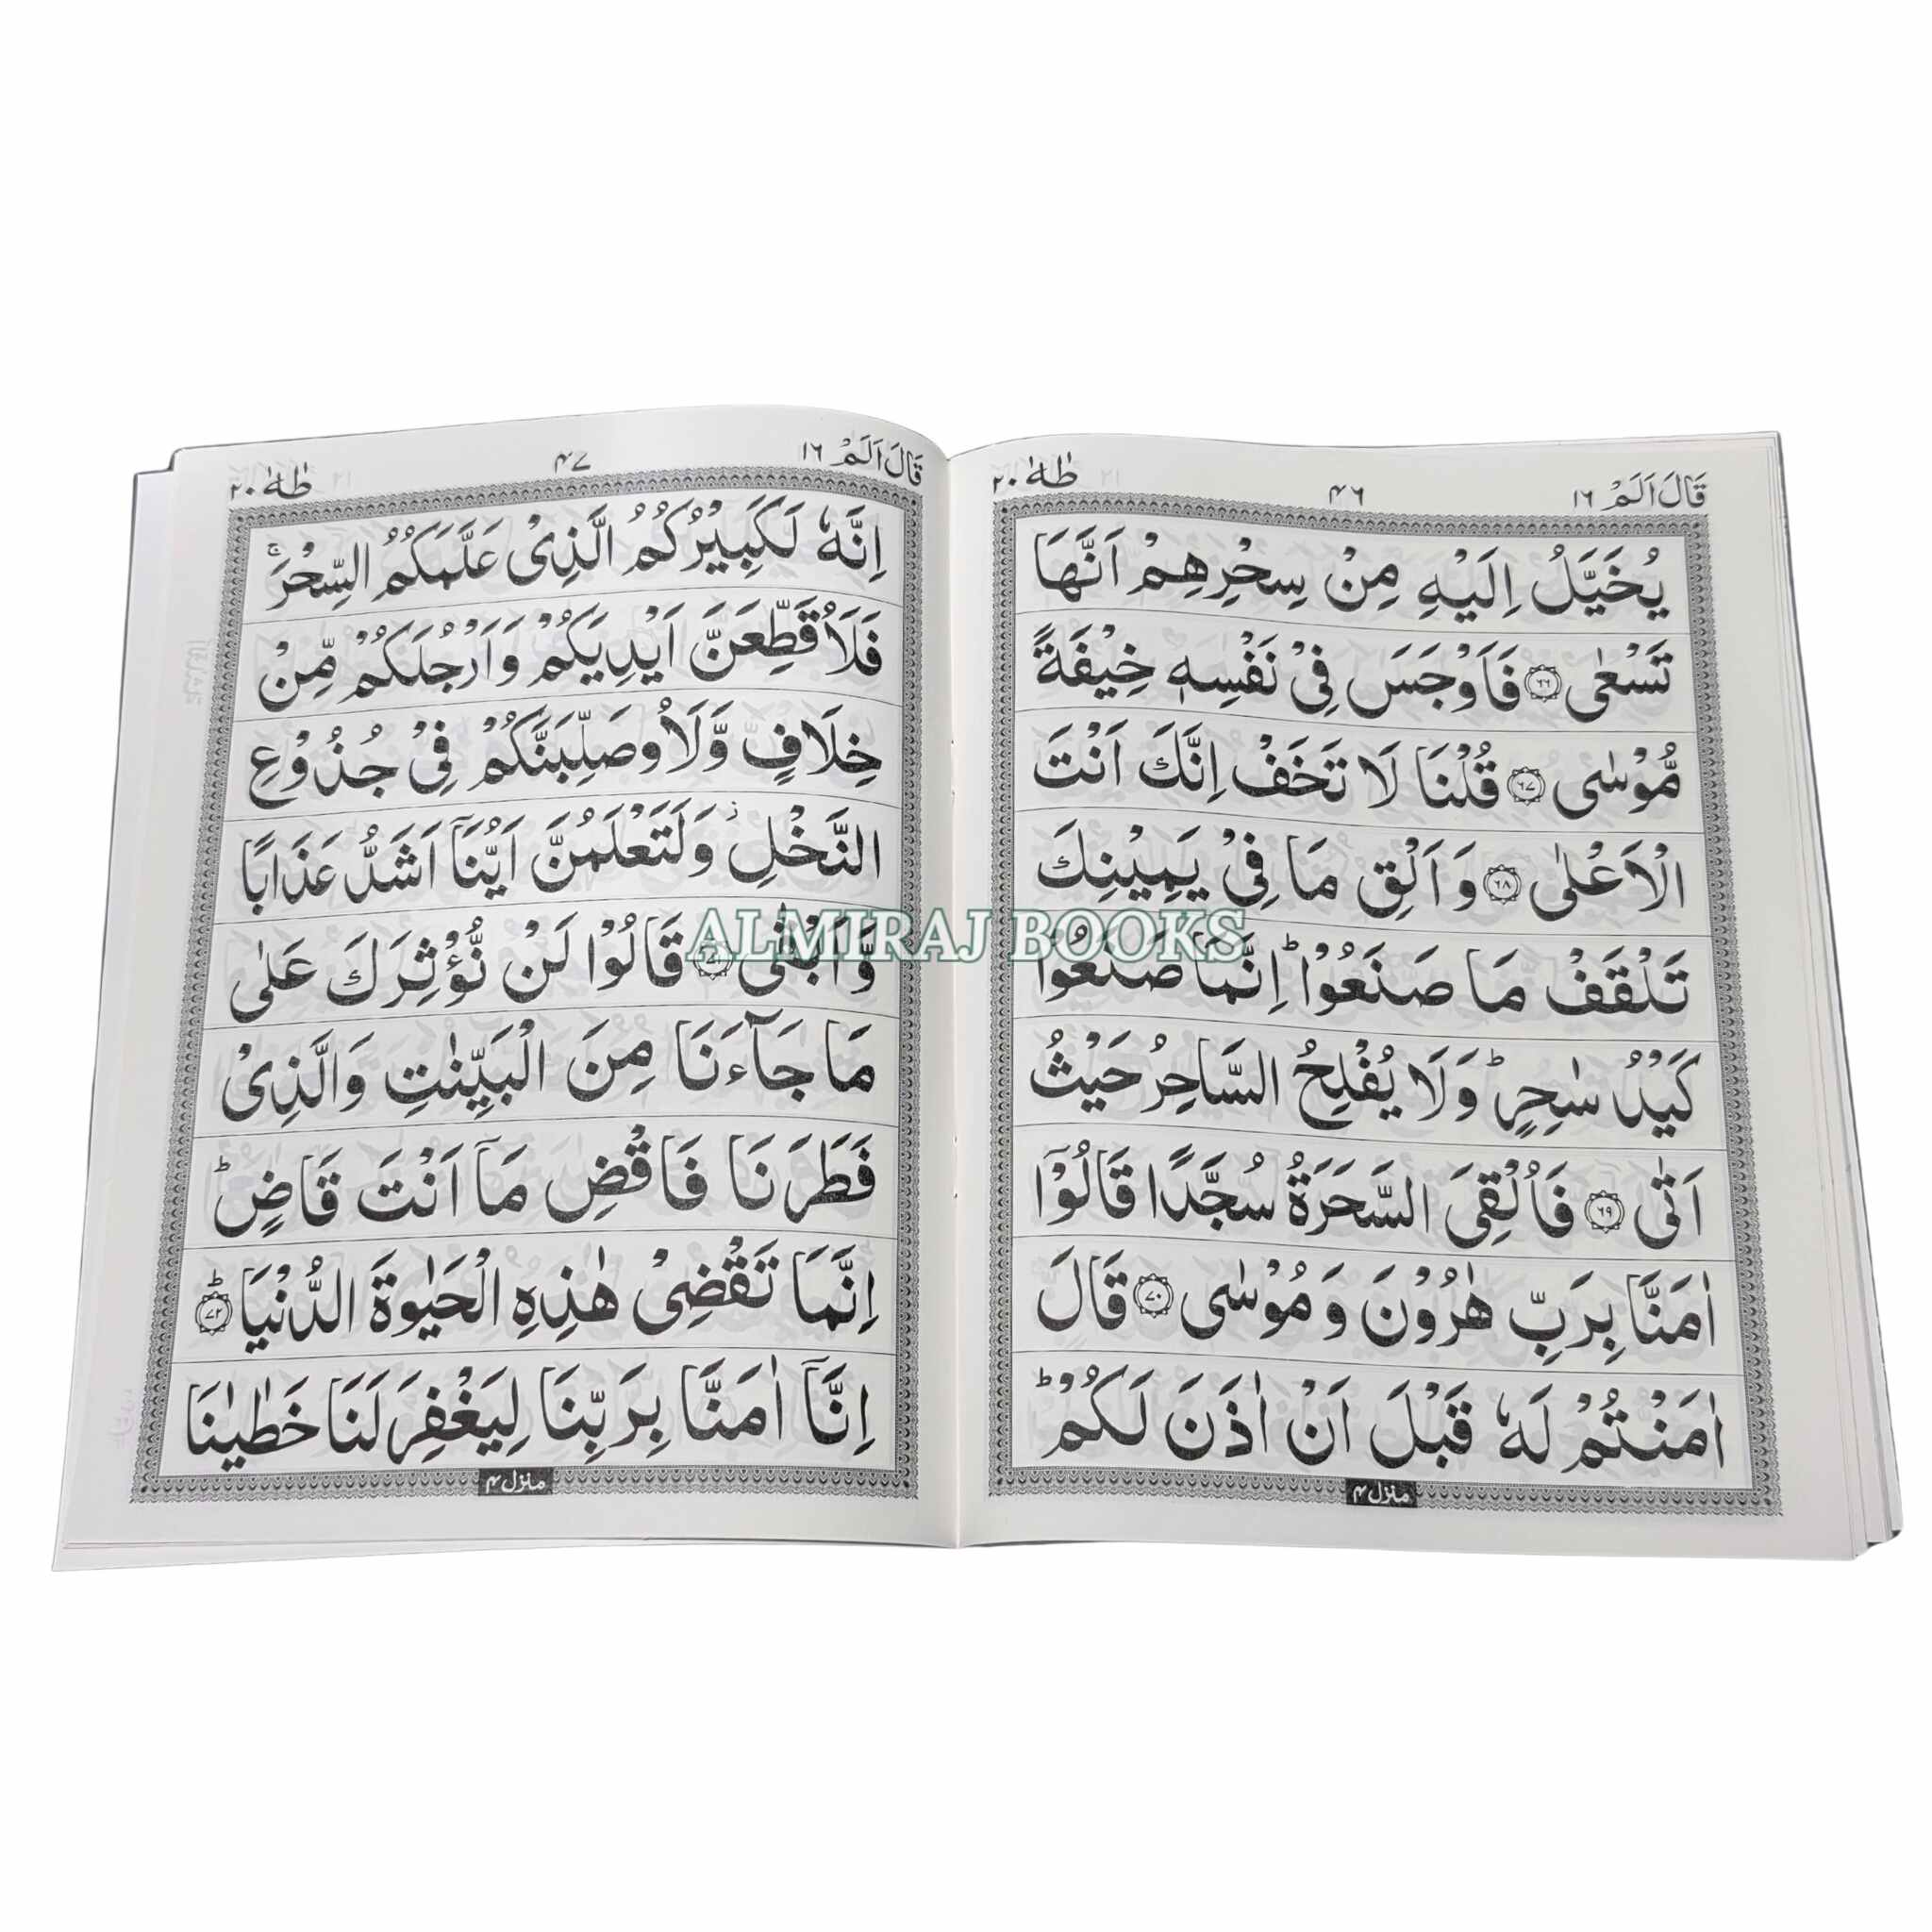 قَالَ اَلَمْ ١٦
۴۶
طٰهٰ ٢٠
يُخَيَّلُ اِلَيْهِ مِنْ سِحْرِهِمْ اَنَّهَا
تَسْعٰى ۝٦٦ فَاَوْجَسَ فِىْ نَفْسِهٖ خِيْفَةً
مُّوْسٰى ۝٦٧ قُلْنَا لَا تَخَفْ اِنَّكَ اَنْتَ
الْاَعْلٰى ۝٦٨ وَاَلْقِ مَا فِىْ يَمِيْنِكَ
تَلْقَفْ مَا صَنَعُوْا ؕ اِنَّمَا صَنَعُوْا
كَيْدُ سٰحِرٍ ؕ وَلَا يُفْلِحُ السَّاحِرُ حَيْثُ
اَتٰى ۝٦٩ فَاُلْقِىَ السَّحَرَةُ سُجَّدًا قَالُوْۤا
اٰمَنَّا بِرَبِّ هٰرُوْنَ وَمُوْسٰى ۝٧٠ قَالَ
اٰمَنْتُمْ لَهٗ قَبْلَ اَنْ اٰذَنَ لَكُمْ ؕ
منزل ۴
قَالَ اَلَمْ ١٦
۴٧
طٰهٰ ٢٠
اِنَّهٗ لَكَبِيْرُكُمُ الَّذِىْ عَلَّمَكُمُ السِّحْرَ ۚ
فَلَاُقَطِّعَنَّ اَيْدِيَكُمْ وَاَرْجُلَكُمْ مِّنْ
خِلَافٍ وَّلَاُوصَلِّبَنَّكُمْ فِىْ جُذُوْعِ
النَّخْلِ ؗ وَلَتَعْلَمُنَّ اَيُّنَاۤ اَشَدُّ عَذَابًا
وَّاَبْقٰى ۝٧١ قَالُوْا لَنْ نُّؤْثِرَكَ عَلٰى
مَا جَآءَنَا مِنَ الْبَيِّنٰتِ وَالَّذِىْ
فَطَرَنَا فَاقْضِ مَاۤ اَنْتَ قَاضٍ ؕ
اِنَّمَا تَقْضِىْ هٰذِهِ الْحَيٰوةَ الدُّنْيَا ؕ۝٧٢
اِنَّاۤ اٰمَنَّا بِرَبِّنَا لِيَغْفِرَ لَنَا خَطٰيٰنَا
منزل ۴
ALMIRAJ BOOKS